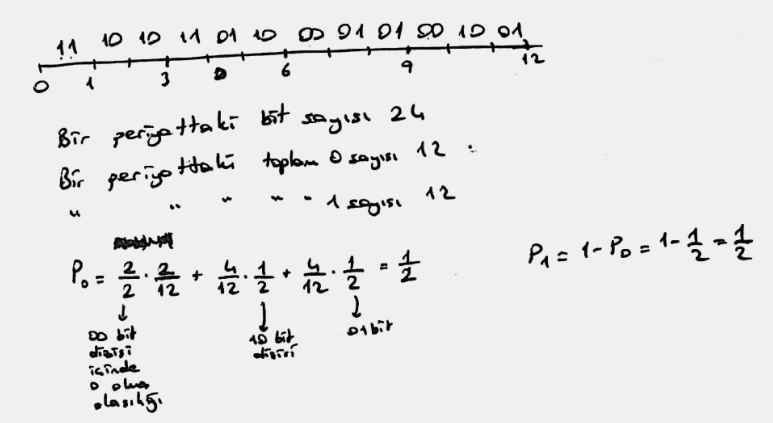 11 10 10 11 01 10 00 01 01 00 10 01
0 1 3 6 9 12
Bir periyottaki bit sayısı 24
Bir periyottaki toplam 0 sayısı 12
" " " " " 1 sayısı 12
P₀ = 2/2 · 2/12 + 4/12 · 1/2 + 4/12 · 1/2 = 1/2
P₁ = 1 - P₀ = 1 - 1/2 = 1/2
00 bit
dizisi
içinde
0 olma
olasılığı
10 bit
dizisi
01 bit